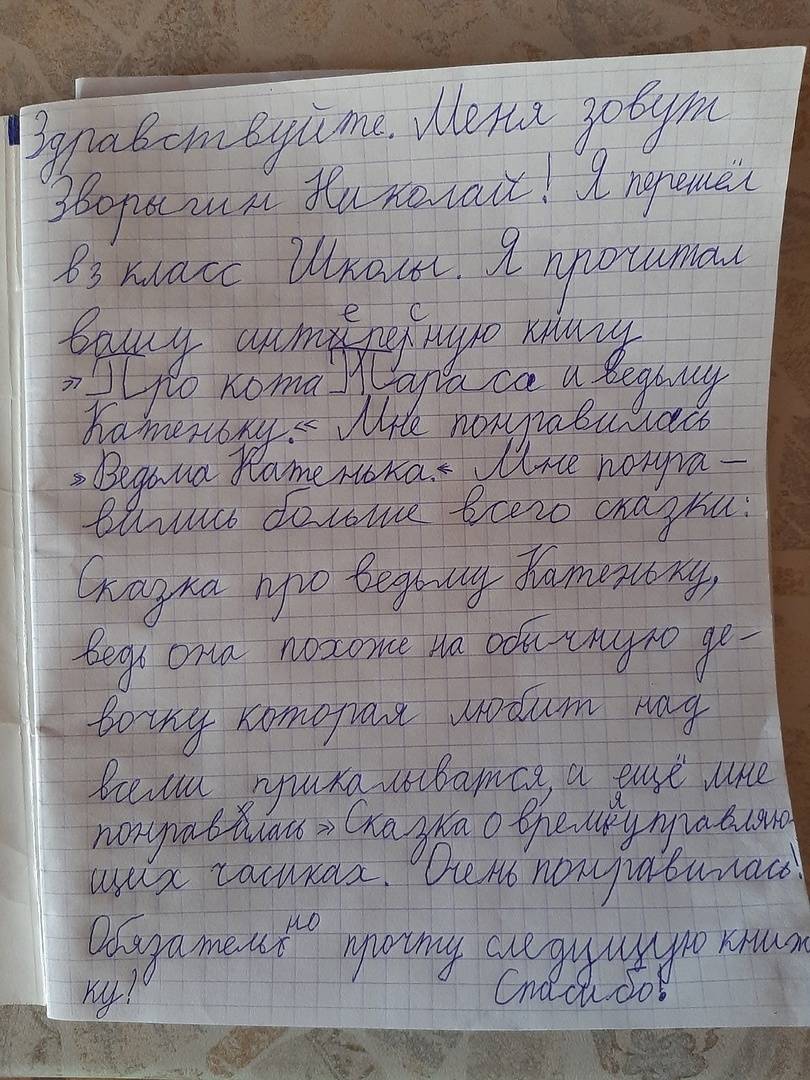 Здравствуйте. Меня зовут
Зворыгин Николай! Я перешёл
в 3 класс Школы. Я прочитал
вашу интересную книгу
"Про кота Тараса и ведьму
Катеньку." Мне понравилась
"Ведьма Катенька." Мне понра-
вились больше всего сказки:
Сказка про ведьму Катеньку,
ведь она похоже на обычную де-
вочку которая любит над
всеми прикалыватся, а ещё мне
понравилась "Сказка о времяуправляю-
щих часиках. Очень понравилась!
Обязательно прочту следущую книж
ку! Спасибо!